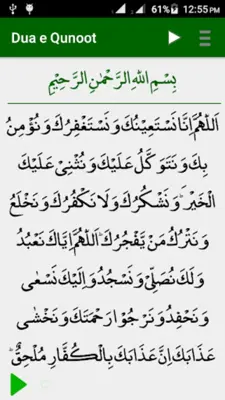 12:55 PM
Dua e Qunoot
بِسْمِ اللهِ الرَّحْمٰنِ الرَّحِيْمِ
اَللّٰهُمَّ اِنَّا نَسْتَعِيْنُكَ وَ نَسْتَغْفِرُكَ وَ نُؤْمِنُ
بِكَ وَ نَتَوَ كَّلُ عَلَيْكَ وَ نُثْنِىْ عَلَيْكَ
الْخَيْرَ ؕ وَ نَشْكُرُكَ وَ لَا نَكْفُرُكَ وَ نَخْلَعُ
وَ نَتْرُكُ مَنْ يَّفْجُرُكَ ؕ اَللّٰهُمَّ اِيَّاكَ نَعْبُدُ
وَ لَكَ نُصَلِّىْ وَ نَسْجُدُ وَ اِلَيْكَ نَسْعٰى
وَ نَحْفِدُ وَ نَرْجُوْا رَحْمَتَكَ وَ نَخْشٰى
عَذَابَكَ اِنَّ عَذَابَكَ بِالْكُفَّارِ مُلْحِقٌ ؕ